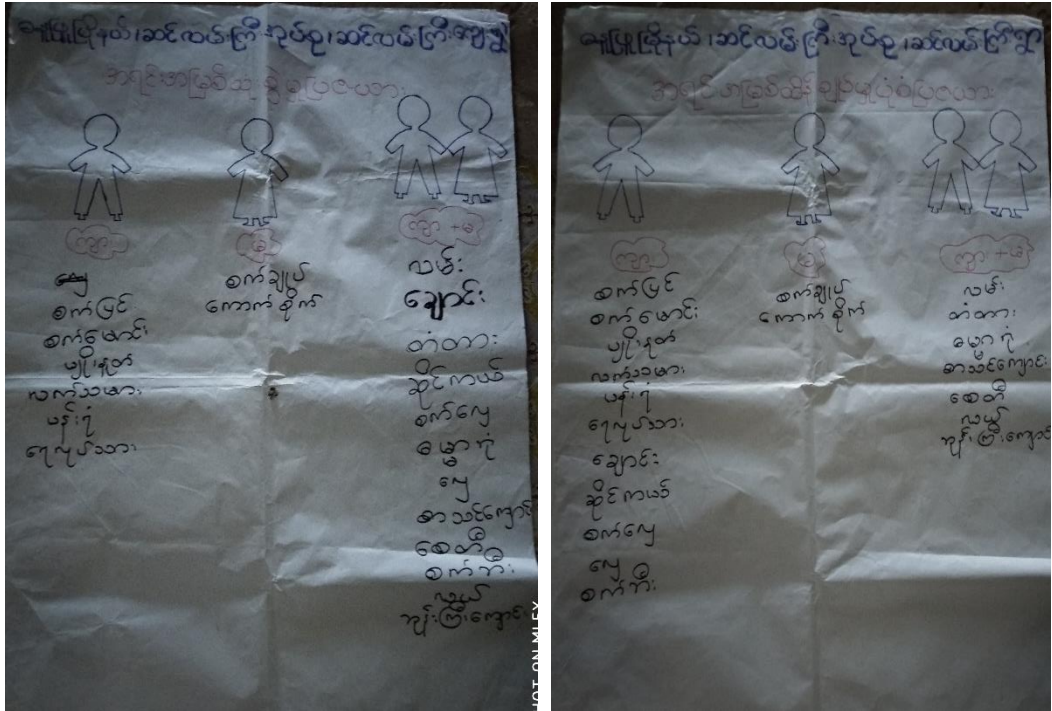 မြို့နယ်၊ ဆင်လမ်းကြီးအုပ်စု၊ ဆင်လမ်းကြီးကျေးရွာ
အရင်းအမြစ်သုံးစွဲမှုပြဇယား
ကျား
မ
ကျား + မ
စက်ပြင်
စက်မောင်း
မျိုးနုတ်
လက်သမား
ပန်းရံ
ရေလုပ်သား
စက်ချုပ်
ကောက်စိုက်
လမ်း
ချောင်း
တံတား
ဆိုင်ကယ်
စက်လှေ
ဓမ္မာရုံ
လှေ
စာသင်ကျောင်း
စေတီ
စက်ဘီး
လယ်
ဘုန်းကြီးကျောင်း
SHOT ON MI 5X
မြို့နယ်၊ ဆင်လမ်းကြီးအုပ်စု၊ ဆင်လမ်းကြီးရွာ
အရင်းအမြစ်ထိန်းချုပ်မှုပုံစံပြဇယား
ကျား
မ
ကျား + မ
စက်ပြင်
စက်မောင်း
မျိုးနုတ်
လက်သမား
ပန်းရံ
ရေလုပ်သား
ချောင်း
ဆိုင်ကယ်
စက်လှေ
လှေ
စက်ဘီး
စက်ချုပ်
ကောက်စိုက်
လမ်း
တံတား
ဓမ္မာရုံ
စာသင်ကျောင်း
စေတီ
လယ်
ဘုန်းကြီးကျောင်း